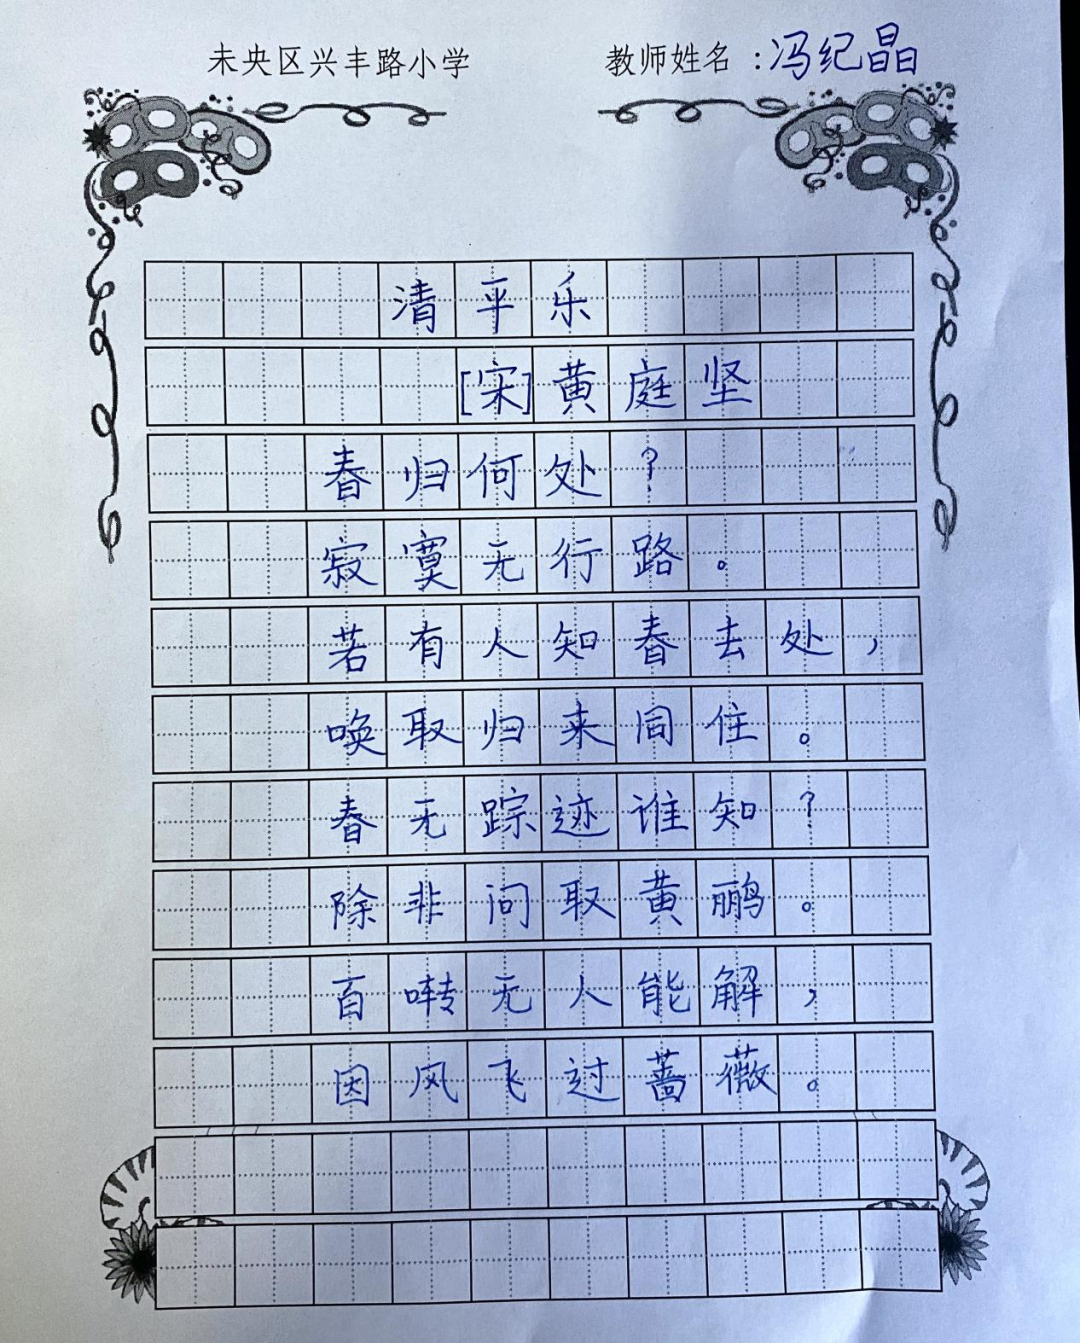 未央区兴丰路小学 教师姓名：冯纪晶
清平乐
[宋]黄庭坚
春归何处？
寂寞无行路。
若有人知春去处，
唤取归来同住。
春无踪迹谁知？
除非问取黄鹂。
百啭无人能解，
因风飞过蔷薇。